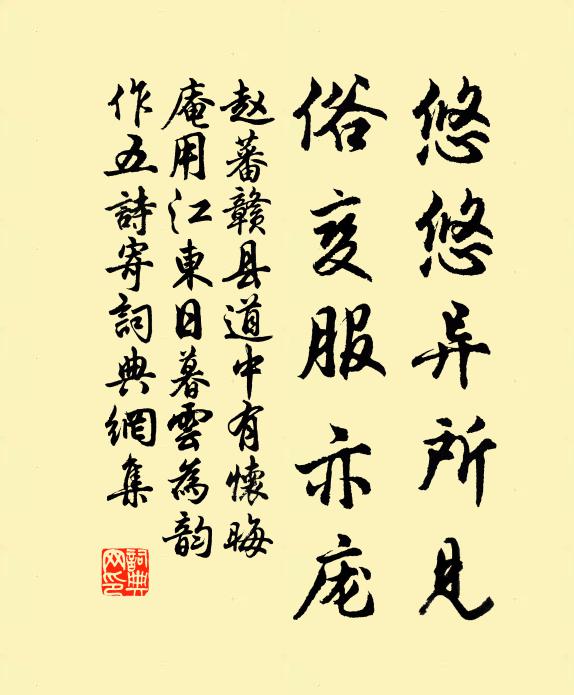 悠悠异所见
俗变服亦庞
赵蕃赣县道中有怀晦
庵用江東日暮雲為韵
作五詩寄詞典網集
詞典网印